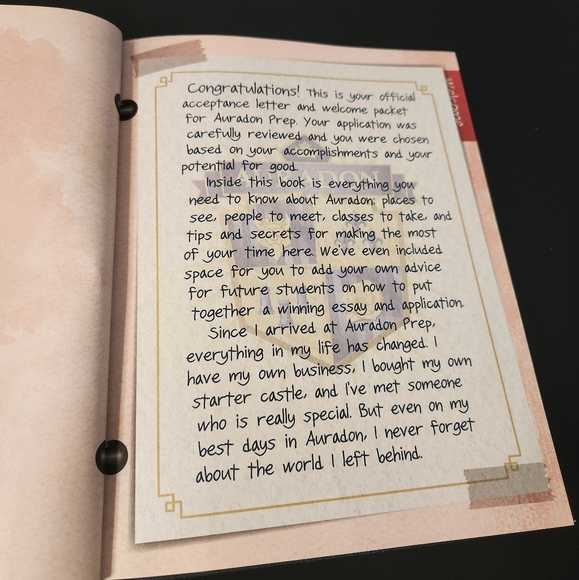 Welcome
Congratulations! This is your official
acceptance letter and welcome packet
for Auradon Prep. Your application was
carefully reviewed and you were chosen
based on your accomplishments and your
potential for good.
AURADON
Inside this book is everything you
need to know about Auradon: places to
see, people to meet, classes to take, and
tips and secrets for making the most
of your time here. We've even included
space for you to add your own advice
for future students on how to put
together a winning essay and application.
Since I arrived at Auradon Prep,
everything in my life has changed. I
have my own business, I bought my own
starter castle, and I've met someone
who is really special. But even on my
best days in Auradon, I never forget
about the world I left behind.